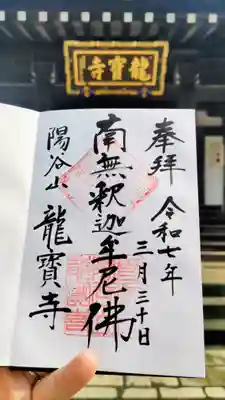 龍寳寺
奉拝 令和七年
三月三十日
南無釈迦牟尼佛
陽谷山 龍寳寺